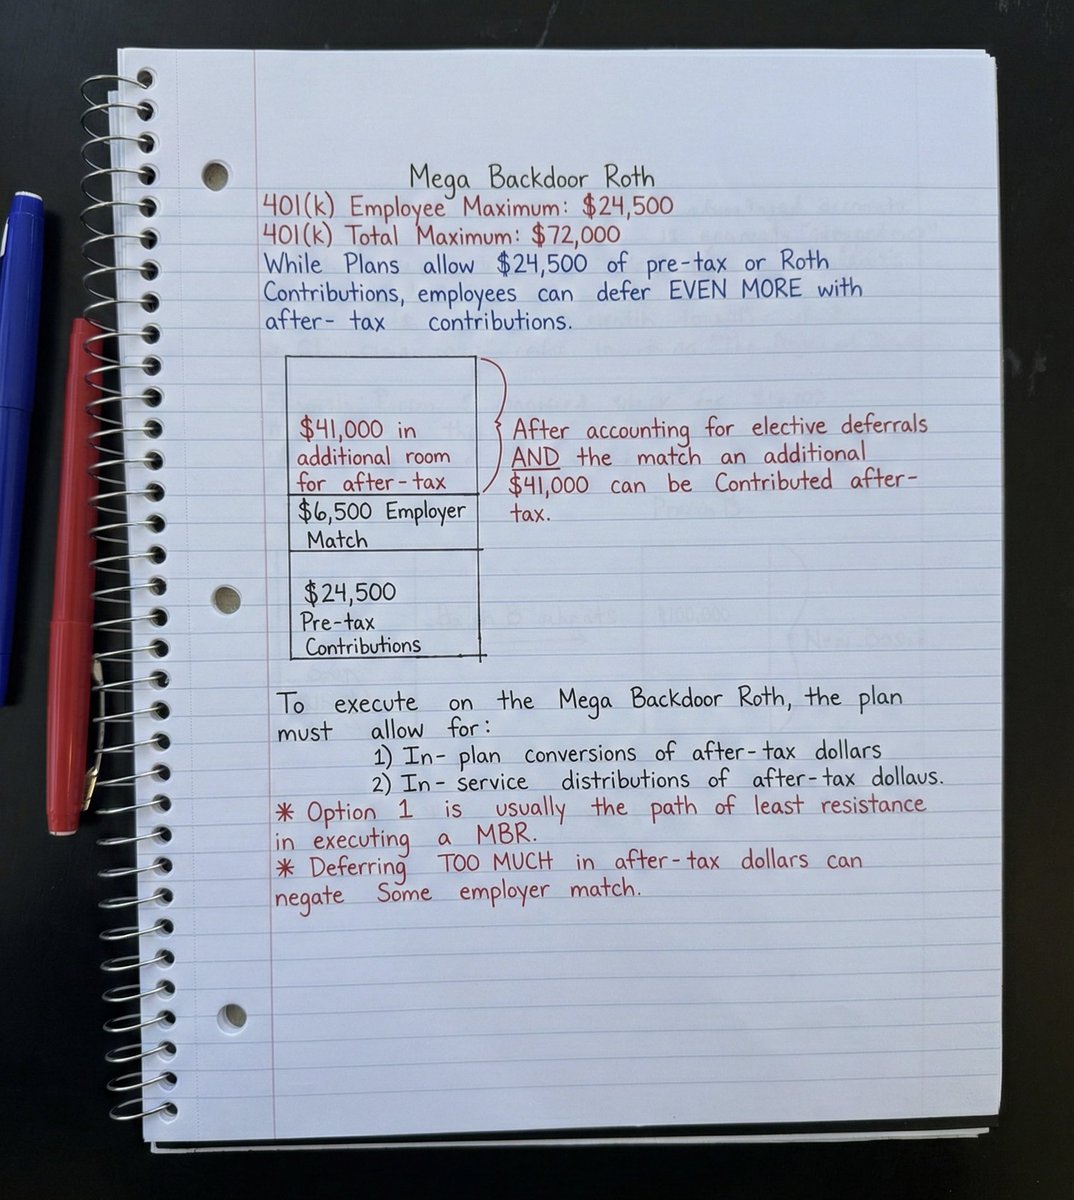 Mega Backdoor Roth
401(k) Employee Maximum: $24,500
401(k) Total Maximum: $72,000
While Plans allow $24,500 of pre-tax or Roth
Contributions, employees can defer EVEN MORE with
after- tax contributions.
$41,000 in
additional room
for after-tax
After accounting for elective deferrals
AND the match an additional
$41,000 can be Contributed after-
tax.
$6,500 Employer
Match
$24,500
Pre-tax
Contributions
To execute on the Mega Backdoor Roth, the plan
must allow for:
1) In- plan conversions of after-tax dollars
2) In- service distributions of after-tax dollaus.
* Option 1 is usually the path of least resistance
in executing a MBR.
* Deferring TOO MUCH in after-tax dollars can
negate Some employer match.